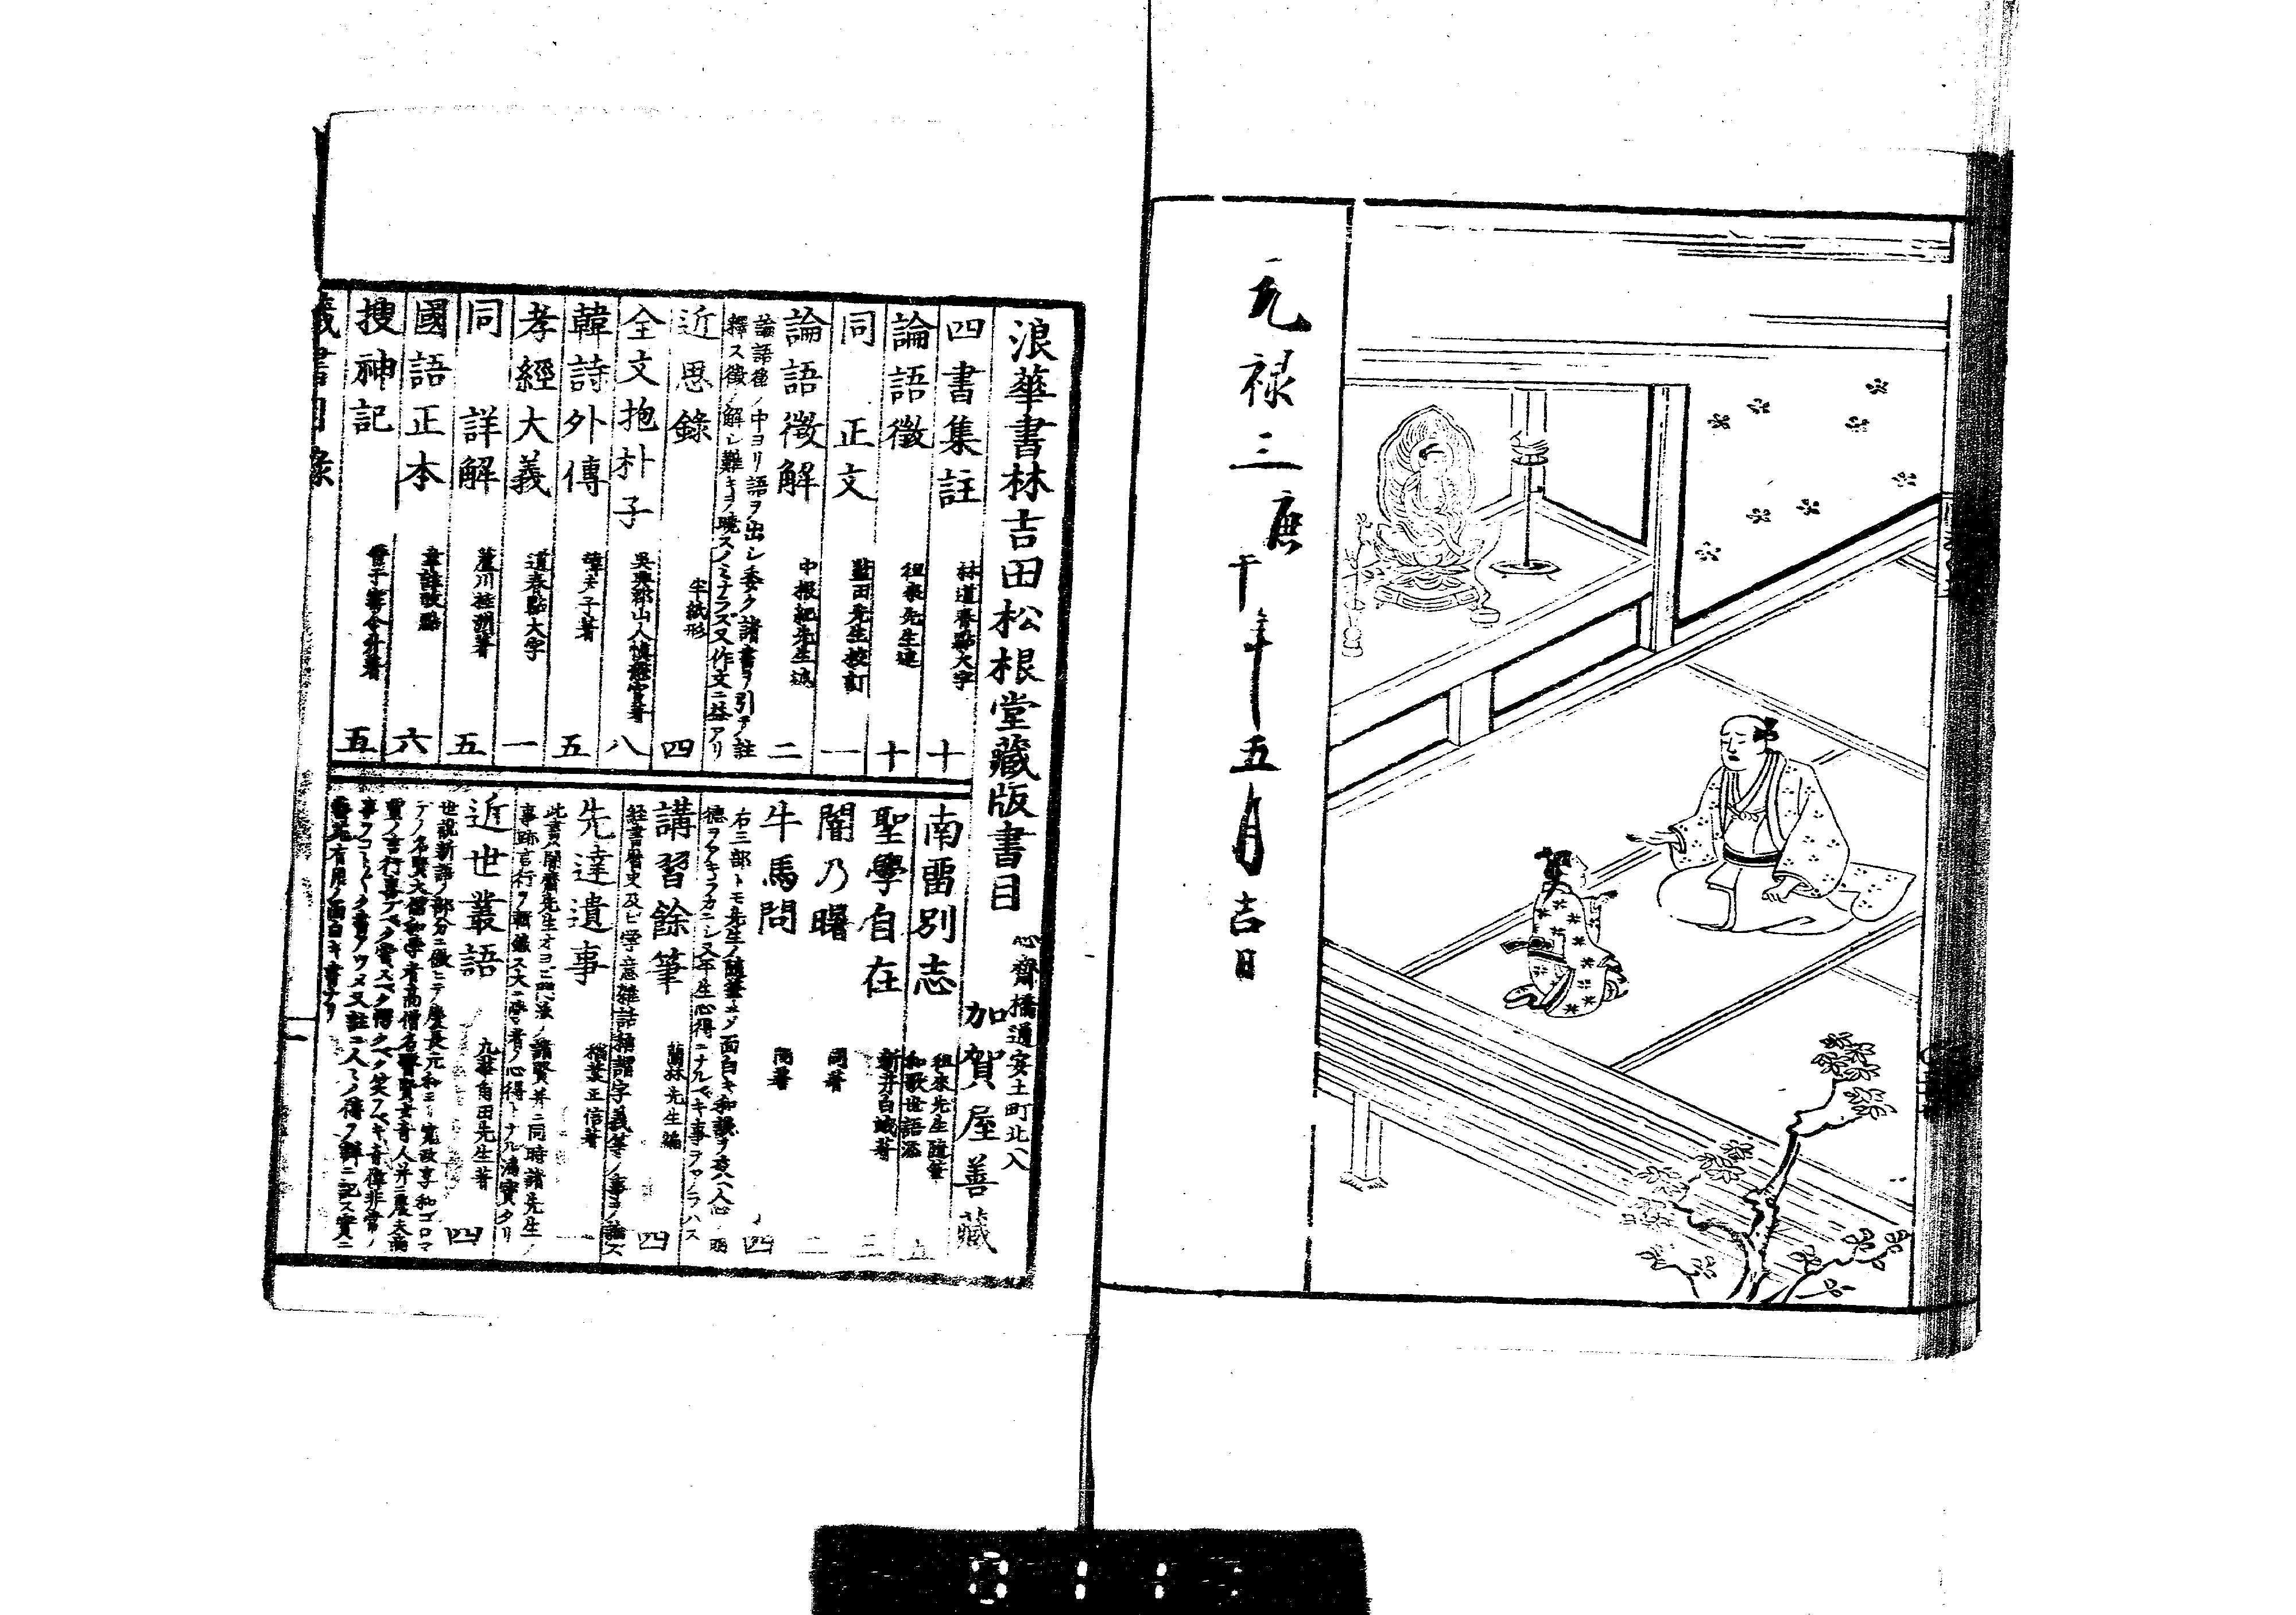 元禄三庚午年五月吉日
浪華書林吉田松根堂藏版書目
心齋橋通安土町北ヘ入
加賀屋善藏
四書集註 林道春點大字 十
論語徵 徂來先生述 十
同正文 藍田先生校訂 一
論語徵解 中根紀先生述 二
論語徵ノ中ヨリ語ヲ出シ委ク諸書ヲ引テ註
釋ス徵ノ解シ難キヲ曉スノミナラズ又作文ニ益アリ
近思錄 半紙形 四
全文抱朴子 吳興郡山人慎懋官著 八
韓詩外傳 韓夫子著 五
孝經大義 道春點大字 一
同詳解 蘆川桂洲著 五
國語正本 韋註改點 六
搜神記 晉于寶令升著 五
藏書目錄
南留別志 徂來先生隨筆 和歌世語添 五
聖學自在 新井白蛾著 三
闇乃曙 同著 二
牛馬問 同著 四
右三部トモ先生ノ隨筆ニシテ面白キ和談ヲ以ヘ人心ノ明
德ヲアキラカニシ又平生心得ニナルベキ事ヲアラハス
講習餘筆 蘭林先生編 四
經書曆史及ビ學意雜話稱謂字義等ノ事ヲ論ズ
先達遺事 稻葉正信著 一
此書ハ闇齋先生オヨヒ其派ノ諸賢并ニ同時諸先生ノ
事跡言行ヲ輯錄ス大ニ學者ノ心得トナル滿實タリ
近世叢語 九華角田先生著 四
世說新語ノ部分ニ傚ヒテ慶長元和ヨリ寬政享和ゴロマ
デノ名賢大儒和學者高僧名醫賢女奇人并ニ農夫商